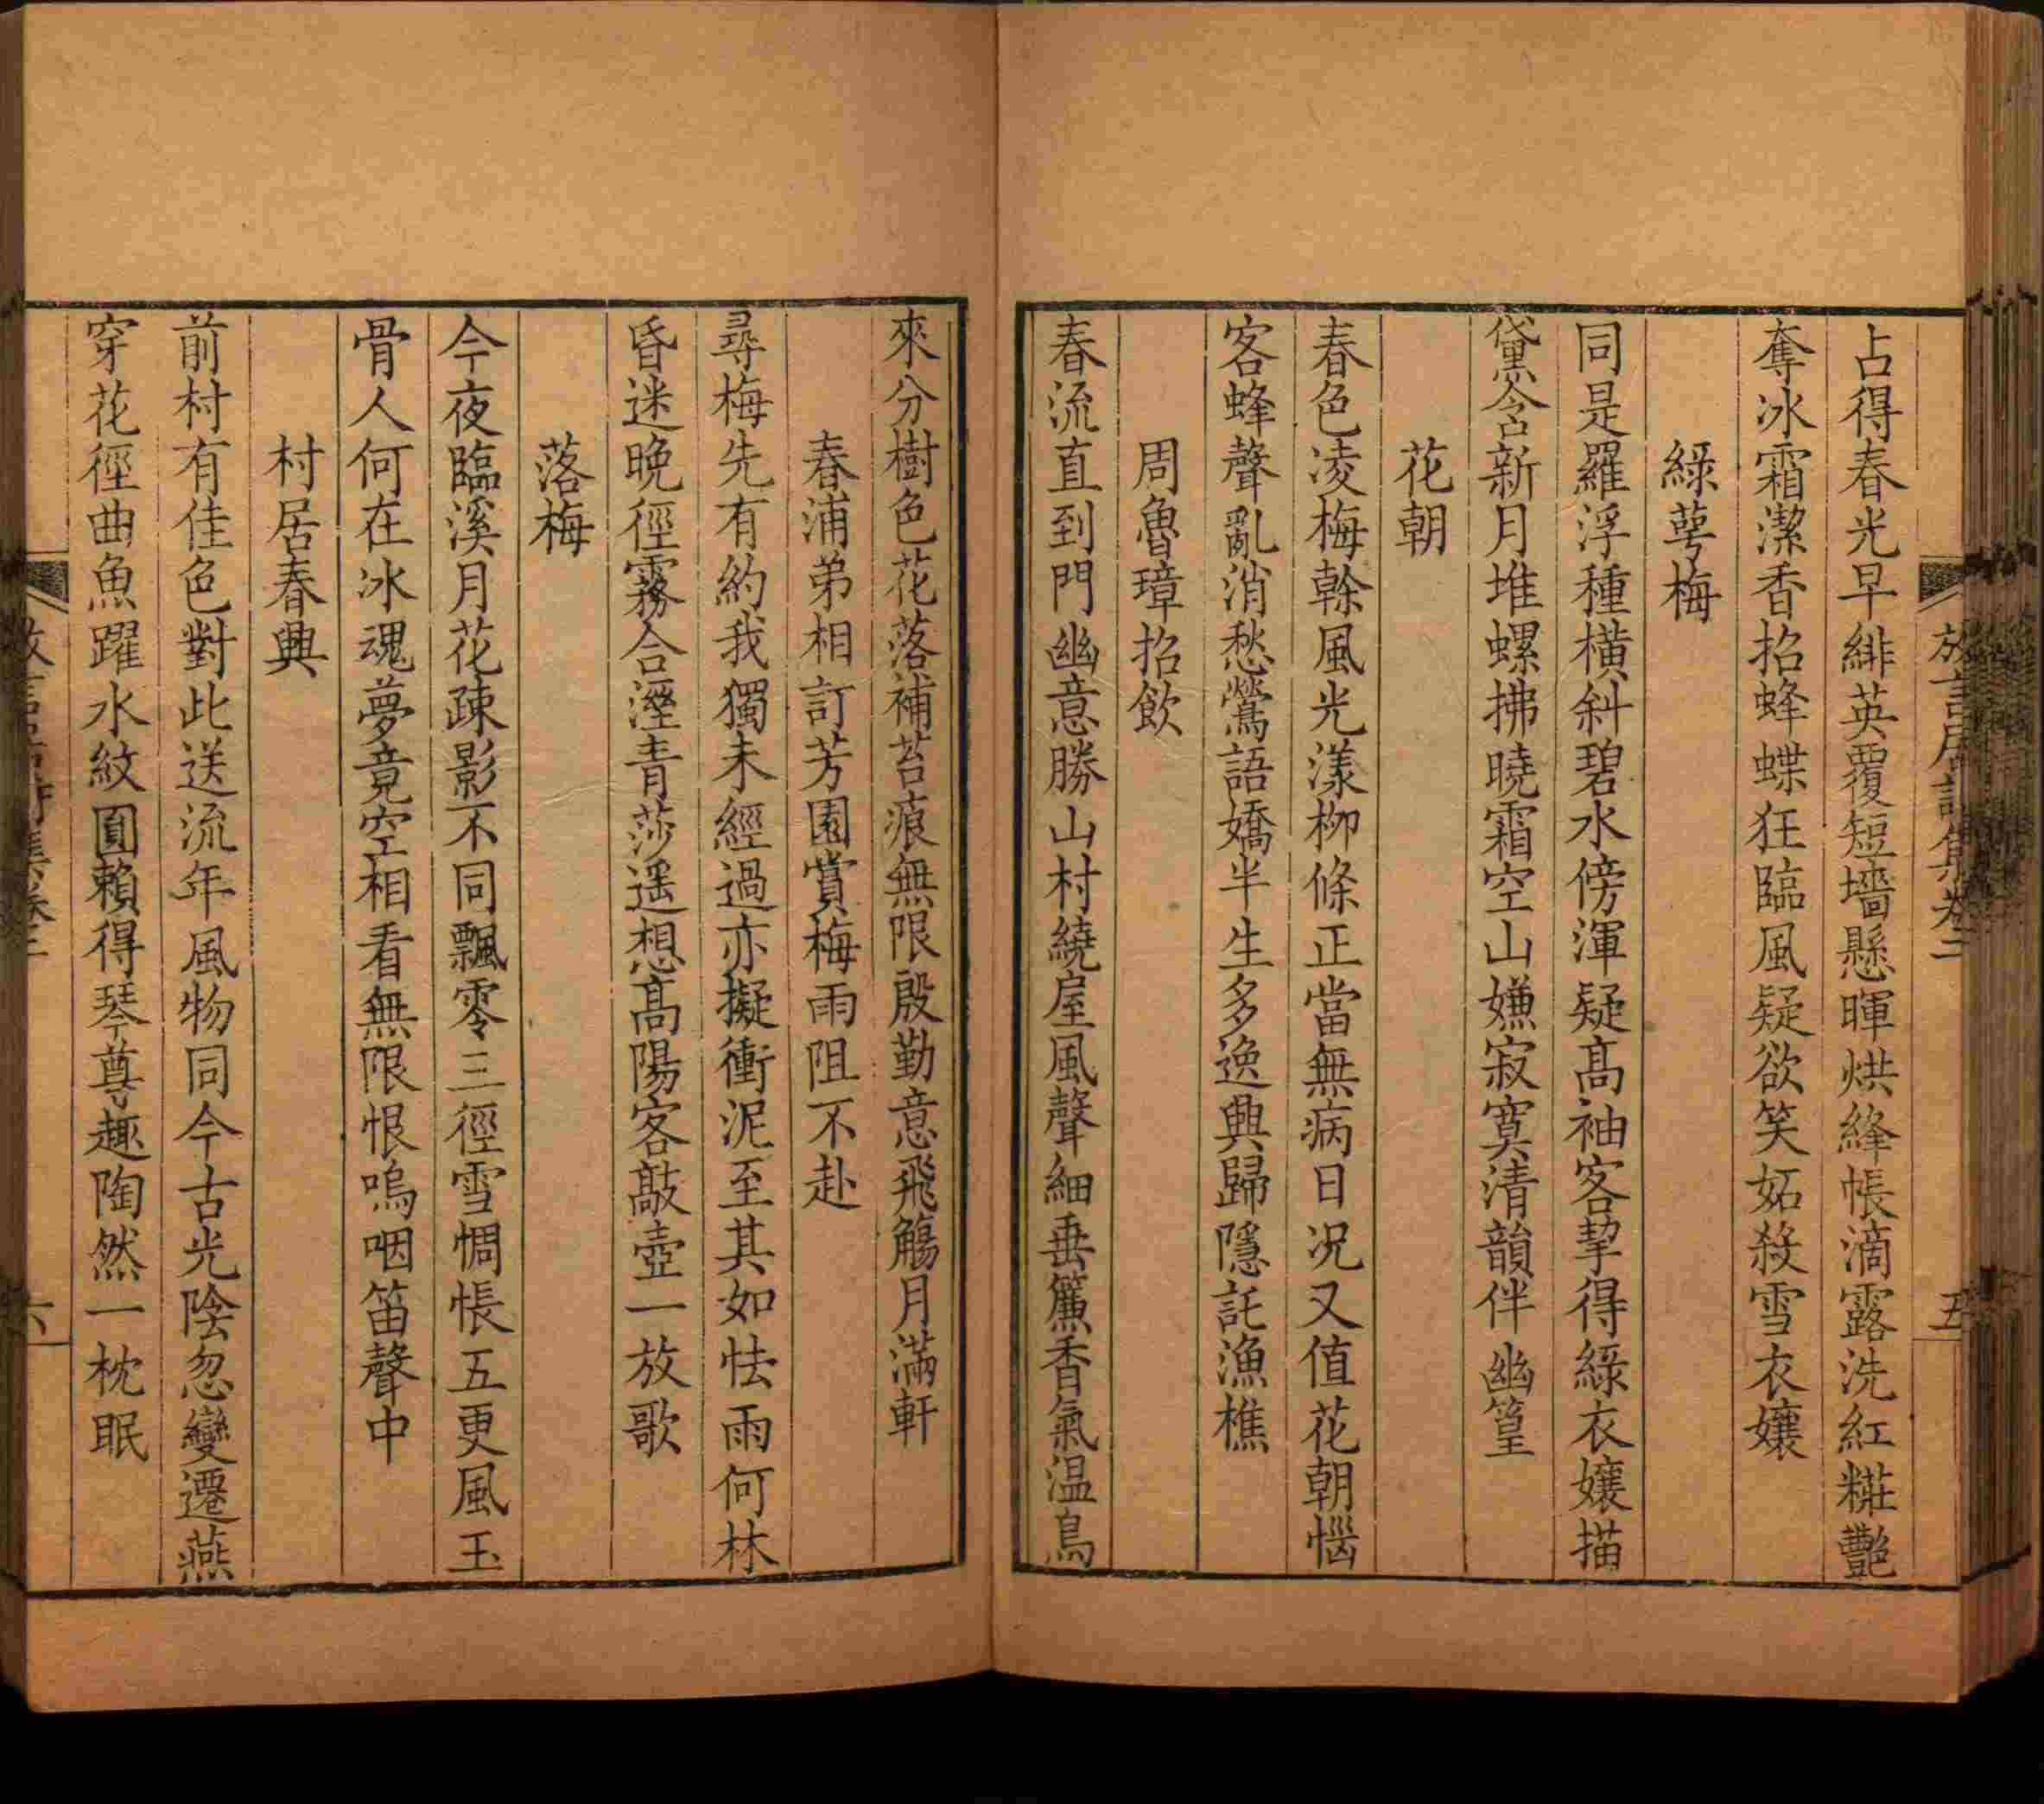 占得春光早緋英覆短墻懸暉烘絳帳滴露洗紅糚艷
奪冰霜潔香招蜂蝶狂臨風疑欲笑妬殺雪衣孃
綠萼梅
同是羅浮種橫斜碧水傍渾疑高袖客挈得綠衣孃描
黛含新月堆螺拂曉霜空山嫌寂寞清韻伴幽篁
花朝
春色凌梅榦風光漾柳條正當無病日况又值花朝惱
客蜂聲亂消愁鶯語嬌半生多逸興歸隱託漁樵
周魯璋招飲
春流直到門幽意勝山村繞屋風聲細垂簾香氣温鳥
來分樹色花落補苔痕無限殷勤意飛觴月滿軒
春浦弟相訂芳園賞梅雨阻不赴
尋梅先有約我獨未經過亦擬衝泥至其如怯雨何林
昏迷晚徑霧合溼青莎遥想高陽客敲壺一放歌
落梅
今夜臨溪月花疎影不同飄零三徑雪惆悵五更風玉
骨人何在冰魂夢竟空相看無限恨嗚咽笛聲中
村居春興
前村有佳色對此送流年風物同今古光陰忽變遷燕
穿花徑曲魚躍水紋圓賴得琴尊趣陶然一枕眠